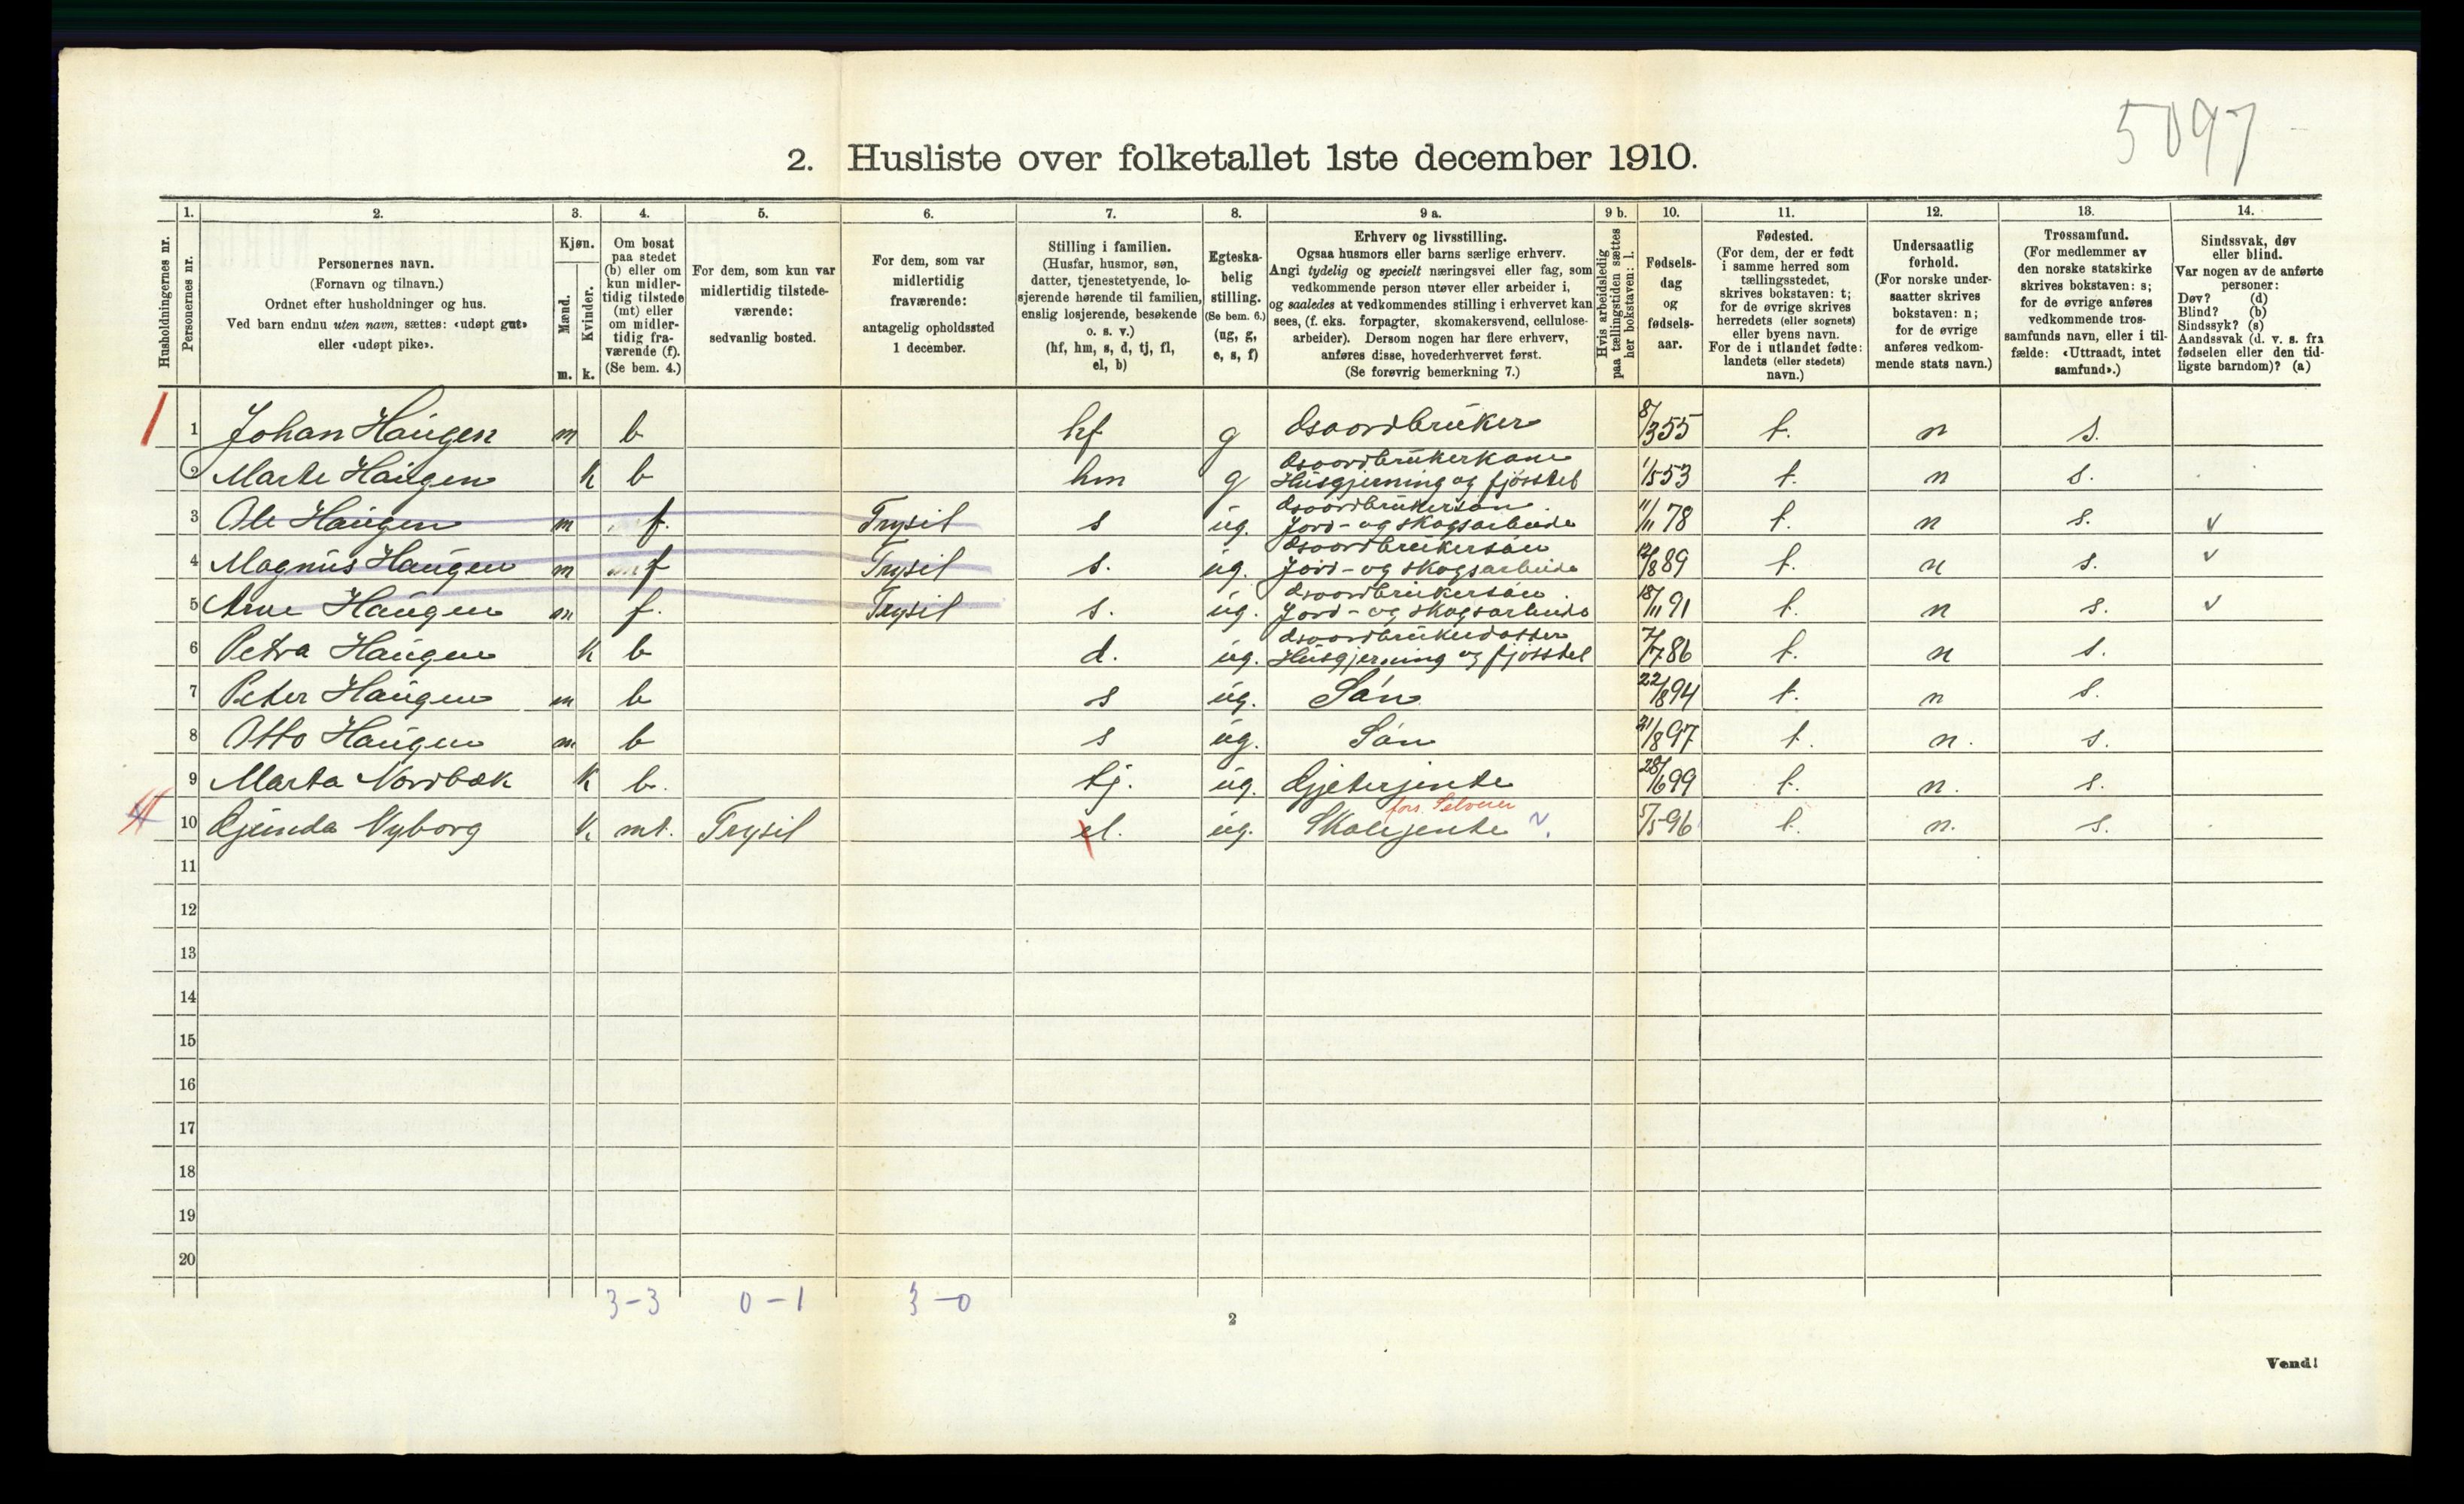 5097
2. Husliste over folketallet 1ste december 1910.
1. 2. 3. 4. 5. 6. 7. 8. 9 a. 9 b. 10. 11. 12. 13. 14.
Husholdningernes nr.
Personernes nr.
Personernes navn.
(Fornavn og tilnavn.)
Ordnet efter husholdninger og hus.
Ved barn endnu uten navn, sættes: «udøpt gut»
eller «udøpt pike».
Kjøn.
Mænd.
Kvinder.
m. k.
Om bosat
paa stedet
(b) eller om
kun midler-
tidig tilstede
(mt) eller
om midler-
tidig fra-
værende (f).
(Se bem. 4.)
For dem, som kun var
midlertidig tilstede-
værende:
sedvanlig bosted.
For dem, som var
midlertidig
fraværende:
antagelig opholdssted
1 december.
Stilling i familien.
(Husfar, husmor, søn,
datter, tjenestetyende, lo-
sjerende hørende til familien,
enslig losjerende, besøkende
o. s. v.)
(hf, hm, s, d, tj, fl,
el, b)
Egteska-
belig
stilling.
(Se bem. 6.)
(ug, g,
e, s, f)
Erhverv og livsstilling.
Ogsaa husmors eller barns særlige erhverv.
Angi tydelig og specielt næringsvei eller fag, som
vedkommende person utøver eller arbeider i,
og saaledes at vedkommendes stilling i erhvervet kan
sees, (f. eks. forpagter, skomakersvend, cellulose-
arbeider). Dersom nogen har flere erhverv,
anføres disse, hovederhvervet først.
(Se forøvrig bemerkning 7.)
Hvis arbeidsledig
paa tællingstiden sættes
her bokstaven: l.
Fødsels-
dag
og
fødsels-
aar.
Fødested.
(For dem, der er født
i samme herred som
tællingsstedet,
skrives bokstaven: t;
for de øvrige skrives
herredets (eller sognets)
eller byens navn.
For de i utlandet fødte:
landets (eller stedets)
navn.)
Undersaatlig
forhold.
(For norske under-
saatter skrives
bokstaven: n;
for de øvrige
anføres vedkom-
mende stats navn.)
Trossamfund.
(For medlemmer av
den norske statskirke
skrives bokstaven: s;
for de øvrige anføres
vedkommende tros-
samfunds navn, eller i til-
fælde: «Uttraadt, intet
samfund».)
Sindssvak, døv
eller blind.
Var nogen av de anførte
personer:
Døv? (d)
Blind? (b)
Sindssyk? (s)
Aandssvak (d. v. s. fra
fødselen eller den tid-
ligste barndom)? (a)
1 Johan Haugen m b hf g Gaardbruker 8/3 55 t. n s.
2 Marte Haugen k b hm g Gaardbrukerkone Husgjerning og fjösstel 1/5 53 t. n s.
3 Ole Haugen m f. Trysil s ug. Gaardbrukersön Jord- og skogsarbeide 11/11 78 t. n s. v
4 Magnus Haugen m f Trysil s. ug. Gaardbrukersön Jord- og skogsarbeide 12/8 89 t. n s. v
5 Arne Haugen m f. Trysil s. ug. Gaardbrukersön Jord- og skogsarbeide 18/11 91 t. n s. v
6 Petra Haugen k b d. ug. Gaardbrukerdatter Husgjerning og fjösstel 7/7 86 t. n s.
7 Peter Haugen m b s ug. Sön 22/8 94 t. n s.
8 Otto Haugen m b s ug. Sön 21/8 97 t. n. s.
9 Marta Nordbæk k b. tj. ug. Gjeterjente 28/6 99 t. n. s.
10 Gjunda Nyborg k mt. Trysil el. ug. Skolejente 5/5 96 t. n. s.
11
12
13
14
15
16
17
18
19
20
3-3 0-1 3-0
2
Vend!